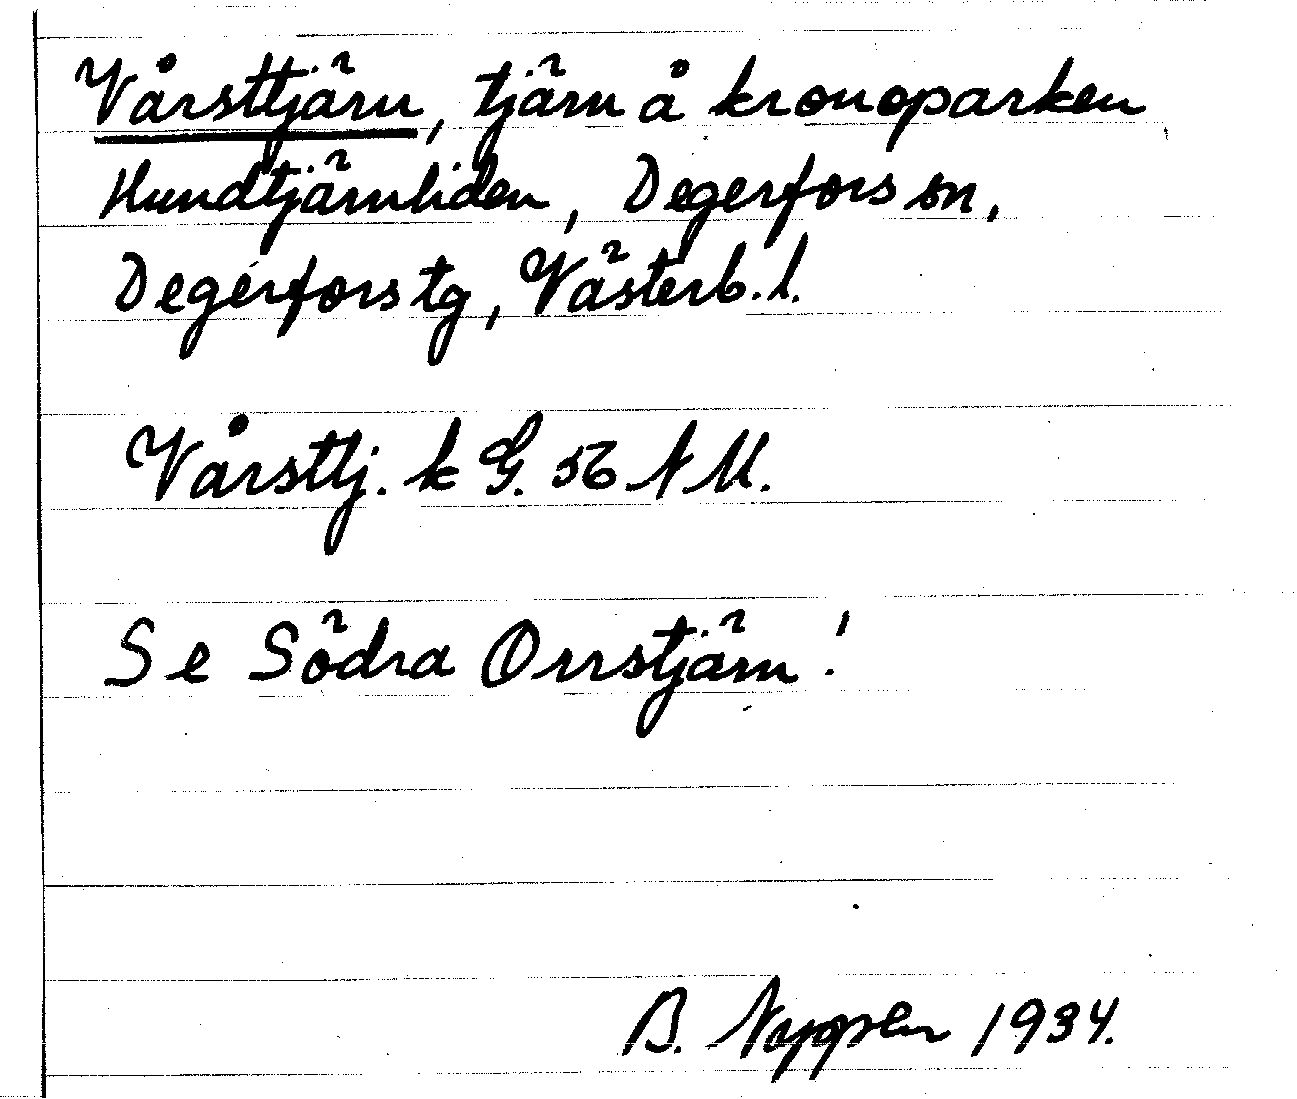 Vårsttjärn, tjärn å kronoparken
Hundtjärnliden, Degerfors sn,
Degerfors tg, Västerb. l.
Vårsttj. k G. 56 NM.
Se Södra Orrstjärn!
B. 1934.